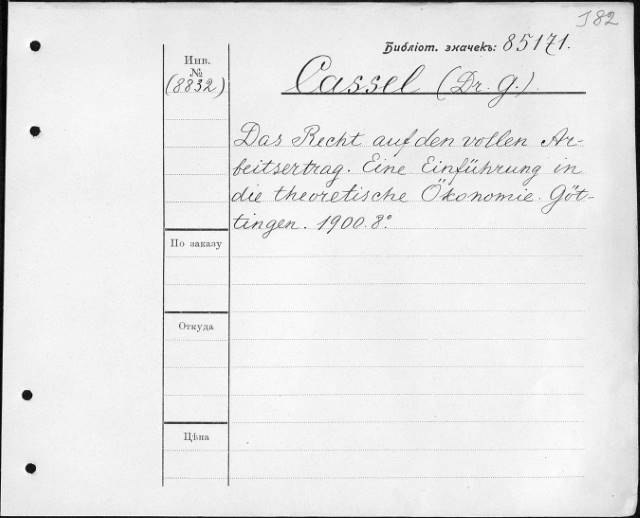 I82
Библіот. значекъ: 85171.
Инв.
№
(8832)
Cassel (Dr. G.)
Das Recht auf den vollen Ar-
beitsertrag. Eine Einführung in
die theoretische Ökonomie. Göt-
tingen. 1900. 8°
По заказу
Откуда
Цѣна